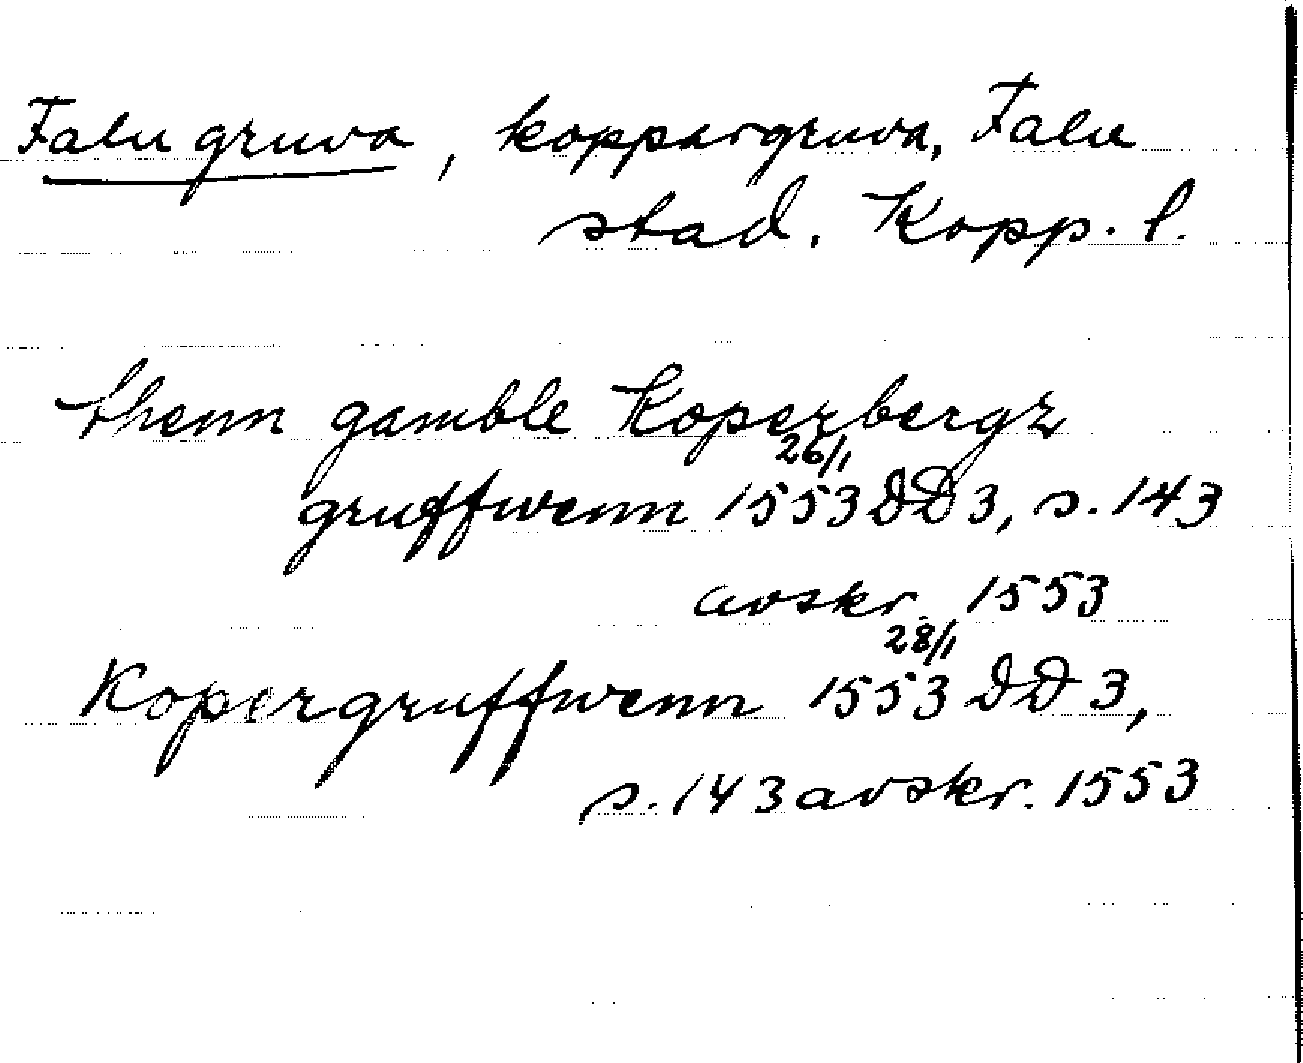 Falu gruva, koppargruva, Falu
stad. Kopp. l.
thenn gamble Koperbergz
26/1
gruffwenn 1553 DD 3, s. 143
avskr. 1553
28/1
Kopergruffwenn 1553 DD 3,
s. 143 avskr. 1553